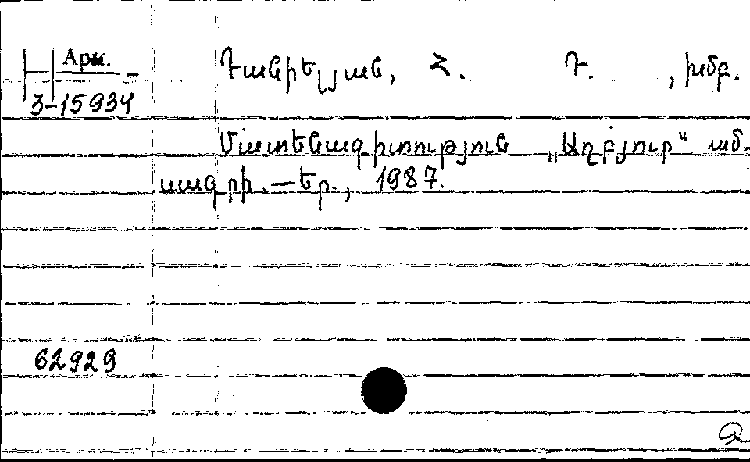 Арм.
3-15934
Դանիելյան, Հ. Դ. , խմբ.
Մատենագիտություն „Աղբյուր“ ամ-
սագրի.—Եր., 1987.
62929